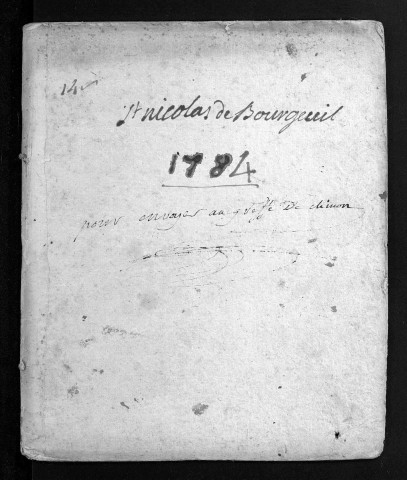 St nicolas de Bourgeuil
1784
pour envoyer au greffe De chinon